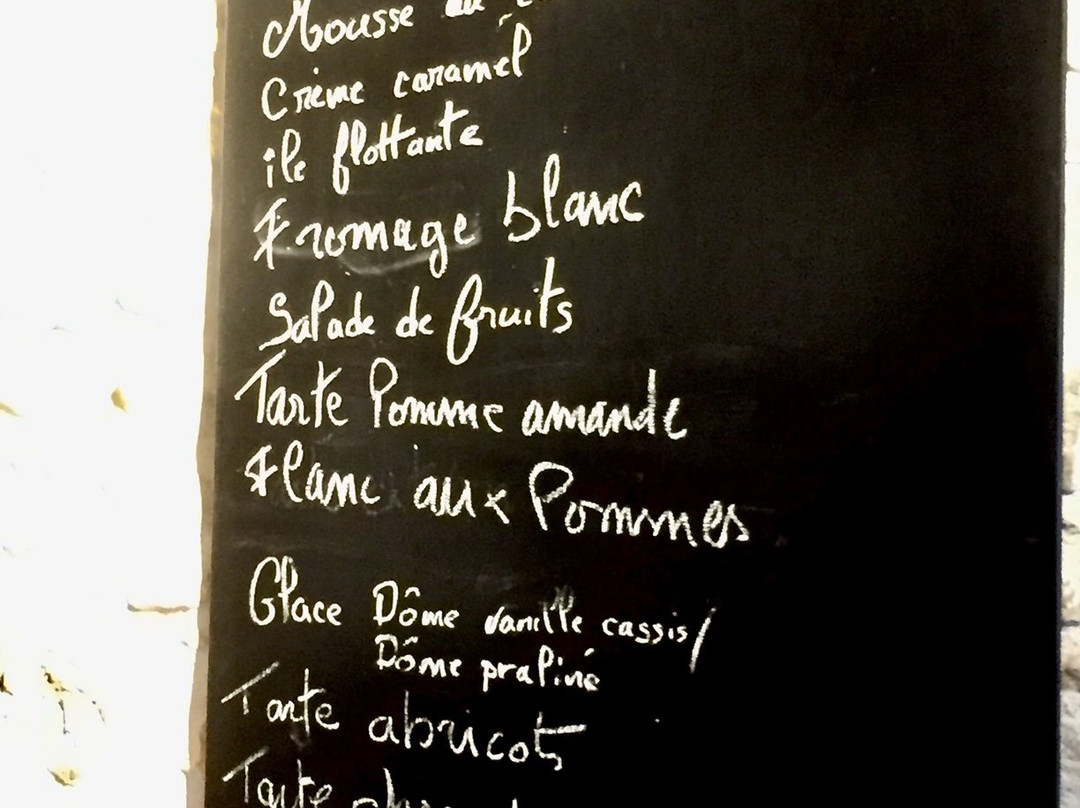 Mousse au
Crème caramel
île flottante
Fromage blanc
Salade de fruits
Tarte Pomme amande
Flanc aux Pommes
Glace Dôme vanille cassis/
Dôme praliné
Tarte abricots
Tarte